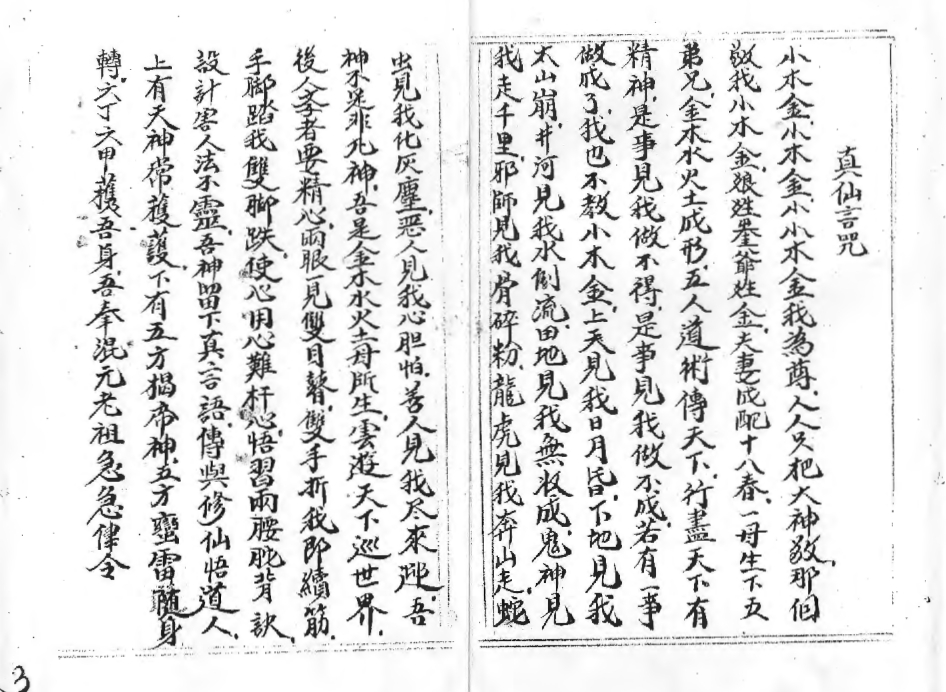 真仙言咒
小木金,小木金,小小木金我為尊,人人只把大神敬,那個
敬我小木金,娘姓墨,爺姓金,夫妻成配十八春,一母生下五
弟兄,金木水火土成形,五人道術傳天下,行盡天下有
精神,是事見我做不得,是事見我做不成,若有一事
做成了,我也不教小木金,上天見我日月昏,下地見我
太山崩,井河見我水倒流,田地見我無收成,鬼神見
我走千里,邪師見我骨碎粉,龍虎見我奔山走,蛇
虫見我化灰塵,惡人見我心胆怕,善人見我尽來迎,吾
神不是非凡神,吾是金木水火土母所生,雲遊天下巡世界,
後人学者要精心,兩眼一見雙目瞽,雙手折我即續筋,
手脚踏我雙脚跌,使心用心難杆心,悟習兩腰脫背訣,
設計害人法不靈,吾神留下真言語,傳與修仙悟道人,
上有天神常護,下有五方揭帝神,五方蠻雷隨身
轉,六丁六甲護吾身,吾奉混元老祖急急律令
3